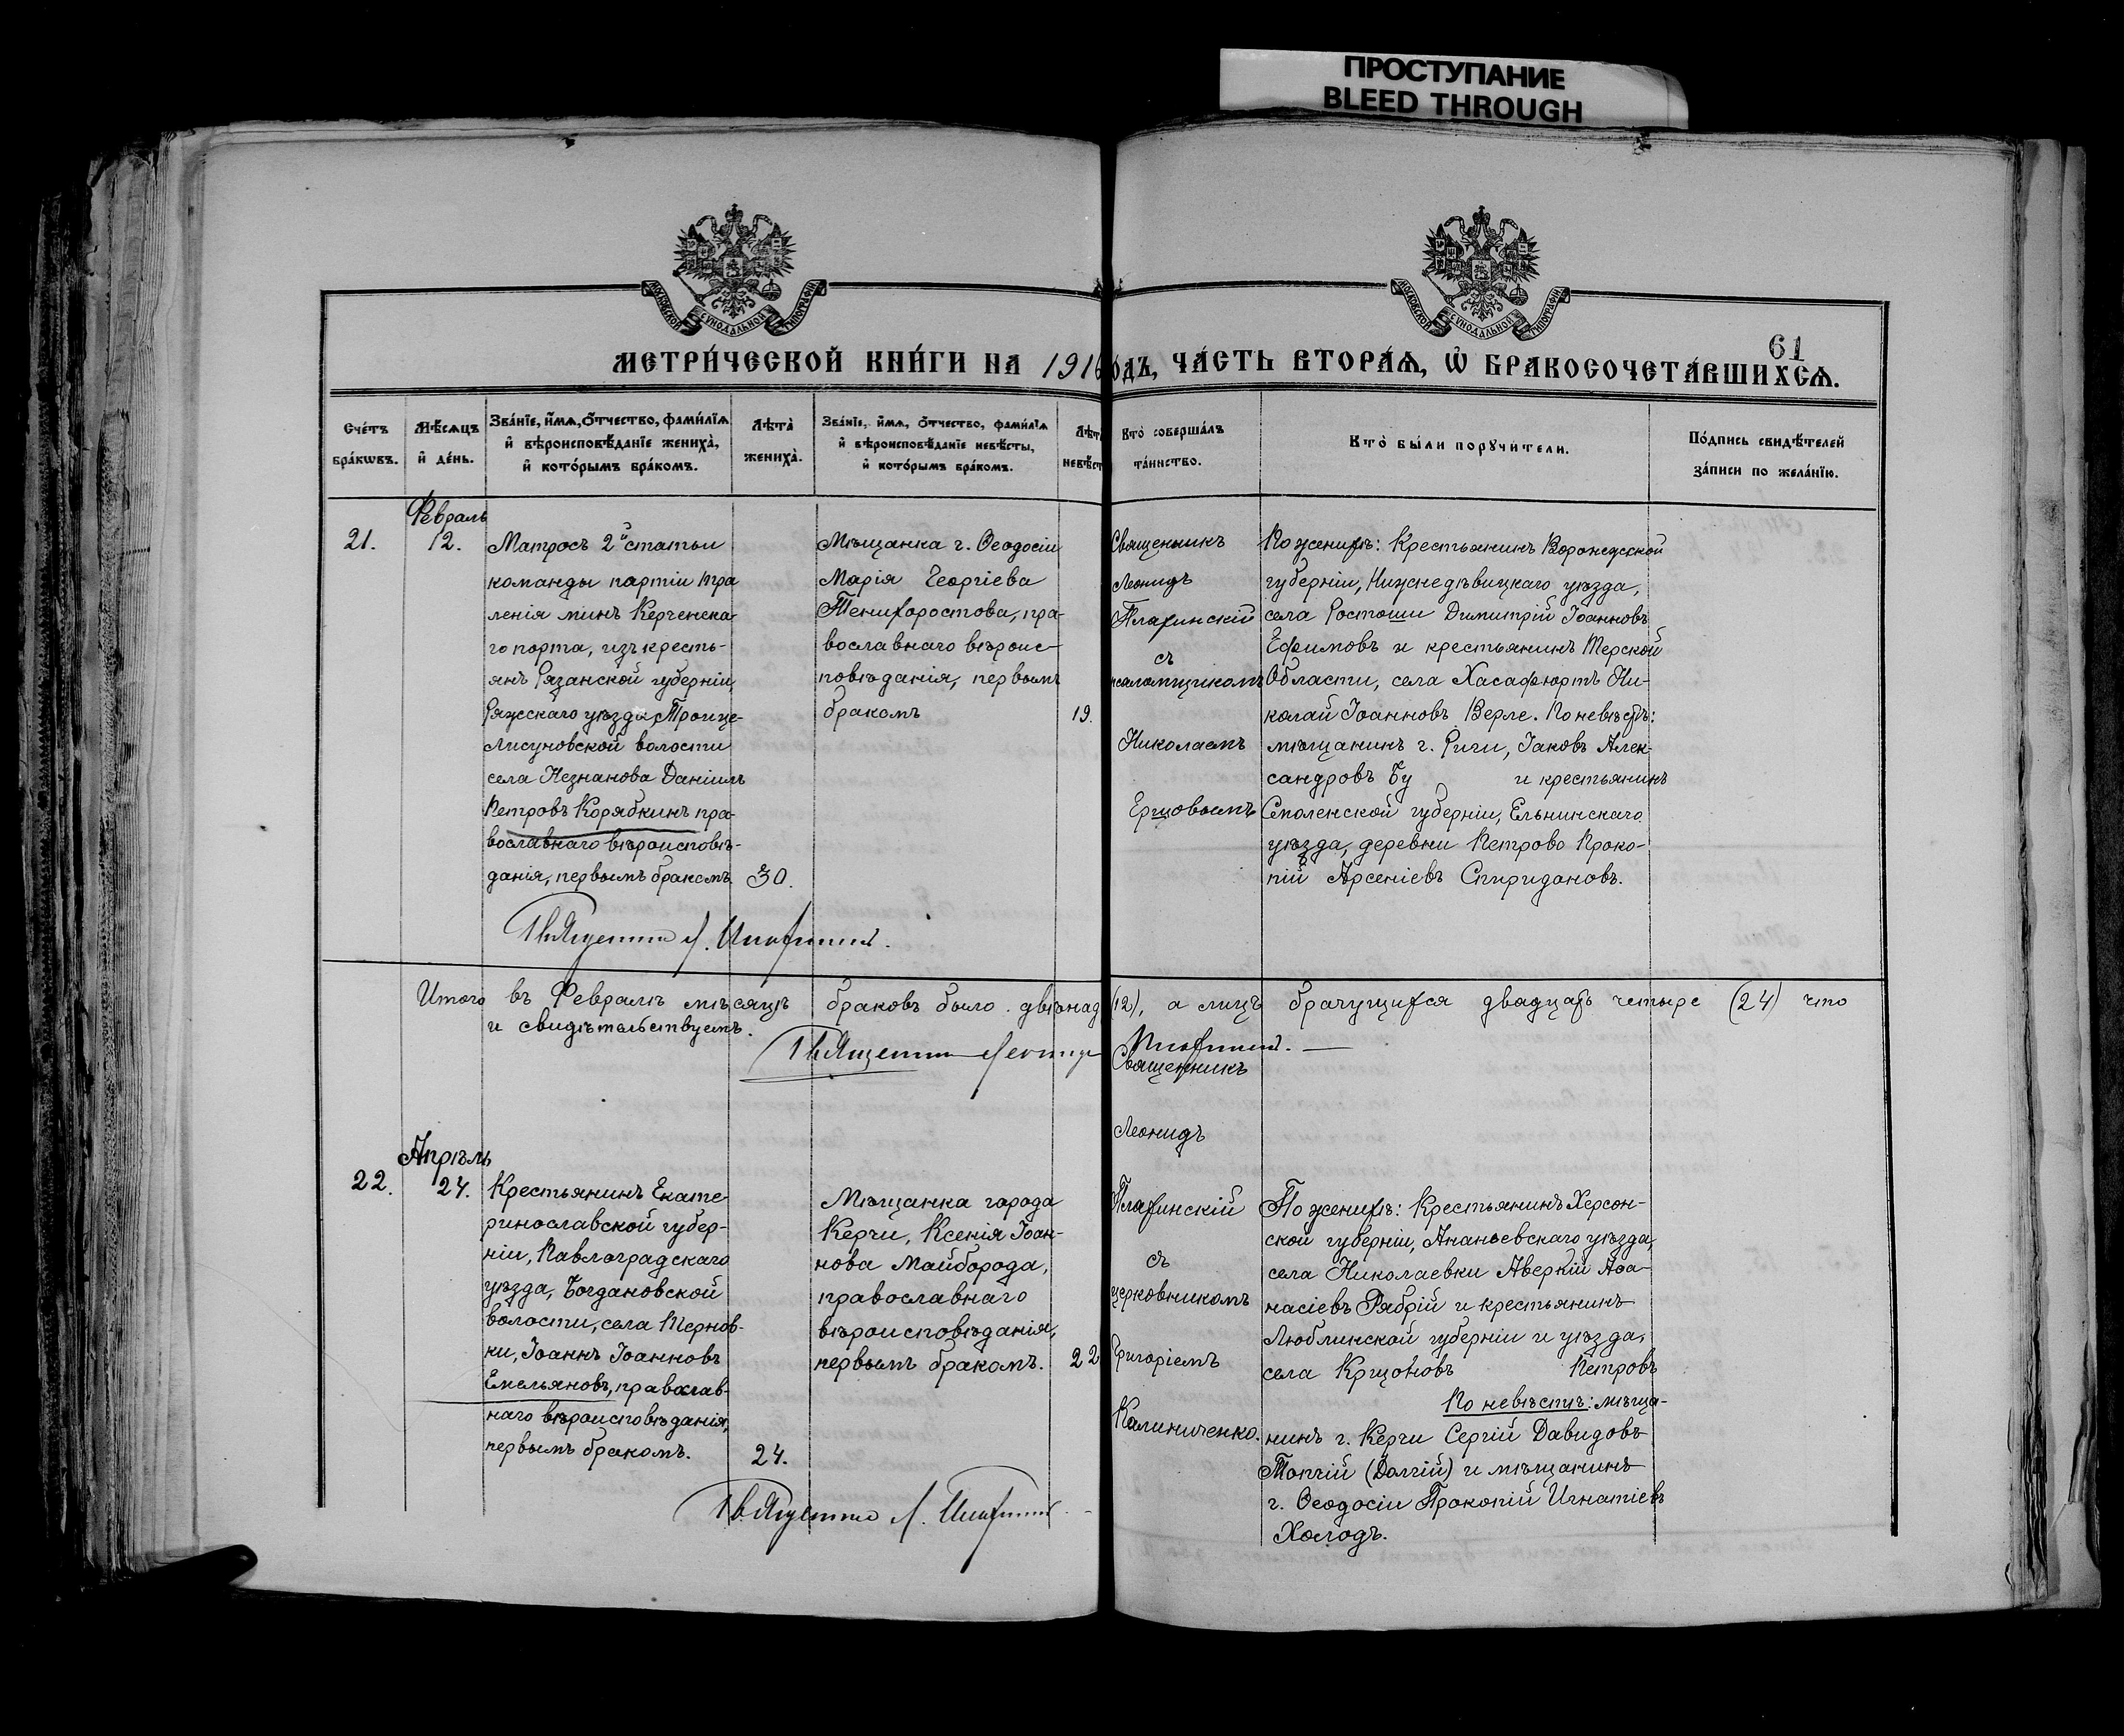 ПРОСТУПАНИЕ
BLEED THROUGH
МОСКОВСКОЙ СѴНОДАЛЬНОЙ ТИПОГРАФІИ
МОСКОВСКОЙ СѴНОДАЛЬНОЙ ТИПОГРАФІИ
61
МЕТРИ́ЧЕСКОЙ КНИ́ГИ НА 1916
ОДЪ, ЧА́СТЬ ВТОРА́Ѧ, Ѡ҆ БРАКОСОЧЕТА́ВШИХСѦ.
Сче́тъ
бра́кѡвъ.
Мѣ́сѧцъ
и҆ де́нь.
Зва́нїе, и҆́мѧ, ѻ҆́тчество, фами́лїѧ
и҆ вѣроисповѣ́данїе жениха̀,
и҆ кото́рымъ бра́комъ.
Лѣта̀
жениха̀.
Зва́нїе, и҆́мѧ, ѻ҆́тчество, фами́лїѧ
и҆ вѣроисповѣ́данїе невѣ́сты,
и҆ кото́рымъ бра́комъ.
Лѣт
невѣ́ст
Кто̀ соверша́лъ
та́инство.
Кто̀ бы́ли порꙋчи́тели.
По́дпись свидѣ́телей
за́писи по жела́нїю.
Февраль
21.
12.
Матросъ 2й статьи
команды партіи тра
ленія минъ Керченска-
го порта, изъ кресть-
янъ Рязанской губерніи,
Ряжскаго уѣзда, Троице-
Лисуновской волости
села Незнанова Даніилъ
Петровъ Корябкинъ пра-
вославнаго вѣроисповѣ-
данія, первымъ бракомъ.
30.
Мѣщанка г. Ѳеодосіи
Марія Георгіева
Тенифоростова, пра-
вославнаго вѣроис-
повѣданія, первымъ
бракомъ
19.
Священникъ
Леонидъ
Плахинскій
съ
псаломщикомъ
Николаемъ
Ершовымъ
По женихѣ: Крестьянинъ Воронежской
губерніи, Нижнедѣвицкаго уѣзда,
села Ростоши Димитрій Іоанновъ
Ефимовъ и крестьянинъ Терской
Области, села Хасафюртъ Ни-
колай Іоанновъ Верле. По невѣстѣ:
мѣщанинъ г. Риги, Іаковъ Алек-
сандровъ Бу и крестьянинъ
Смоленской губерніи, Ельнинскаго
уѣзда, деревни Петрово Проко-
пій Арсеніевъ Спиридановъ.
Священникъ Л. Плахинскій.
Итого въ Февралѣ мѣсяцѣ браковъ было двѣнад (12), а лицъ брачущихся двадцать четыре (24) что
и свидѣтельствуемъ.
Священникъ Леонид Плахинскій.
Священникъ
Леонидъ
Плахинскій
съ
церковникомъ
Григоріемъ
Калиниченко.
Апрѣль
22.
24.
Крестьянинъ Екате
ринославской губер-
ніи, Павлоградскаго
уѣзда, Богдановской
волости, села Тернов-
ки, Іоаннъ Іоанновъ
Емельяновъ, православ-
наго вѣроисповѣданія,
первымъ бракомъ.
24.
Мѣщанка города
Керчи, Ксенія Іоан-
нова Майборода,
православнаго
вѣроисповѣданія,
первымъ бракомъ.
22
По женихѣ: Крестьянинъ Херсон-
ской губерніи, Ананьевскаго уѣзда,
села Николаевки Аверкій Аѳа-
насіевъ Рябрій и крестьянинъ
Люблинской губерніи и уѣзда,
села Кршоновъ Петровъ
По невѣстѣ: мѣща-
нинъ г. Керчи Сергій Давидовъ
Топчій (Долгій) и мѣщанинъ
г. Ѳеодосіи Прокопій Игнатіевъ
Холодъ.
Священникъ Л. Плахинскій